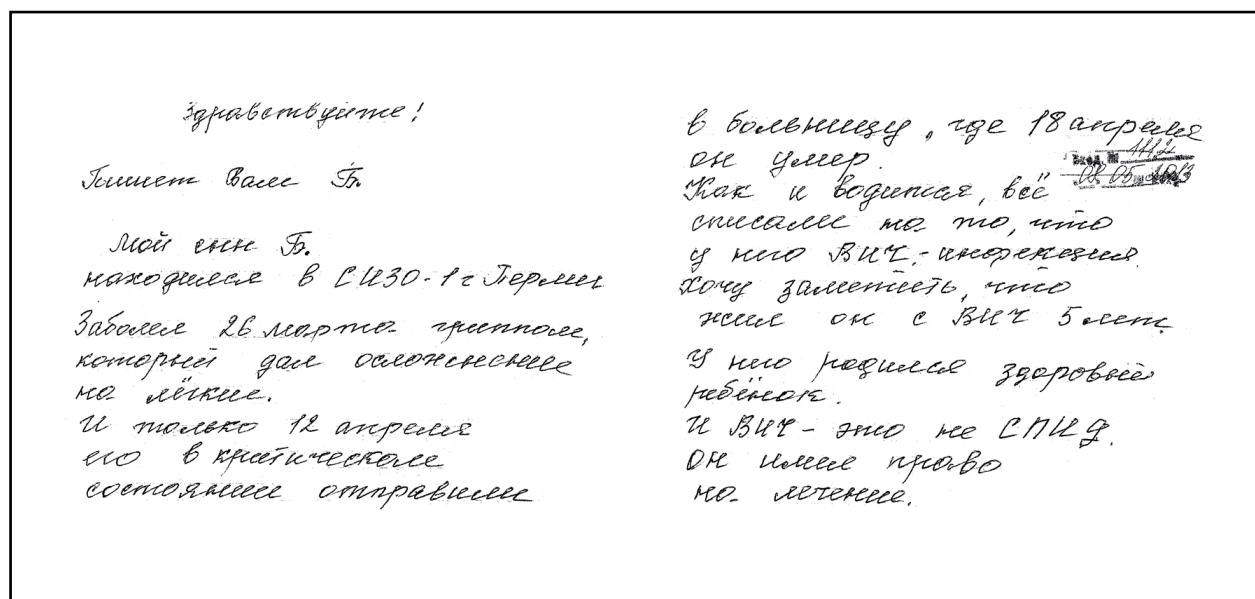 Здравствуйте!
Пишет Вам Б.
Мой сын Б.
находился в СИЗО-1 г Перми
Заболел 26 марта гриппом,
который дал осложнение
на лёгкие.
И только 12 апреля
его в критическом
состоянии отправили
в больницу, где 18 апреля
он умер.
Вход. №
08 05
Как и водится, всё
списали на то, что
у него ВИЧ-инфекция.
Хочу заметить, что
жил он с ВИЧ 5 лет.
У него родился здоровый
ребёнок.
И ВИЧ - это не СПИД.
Он имел право
на лечение.